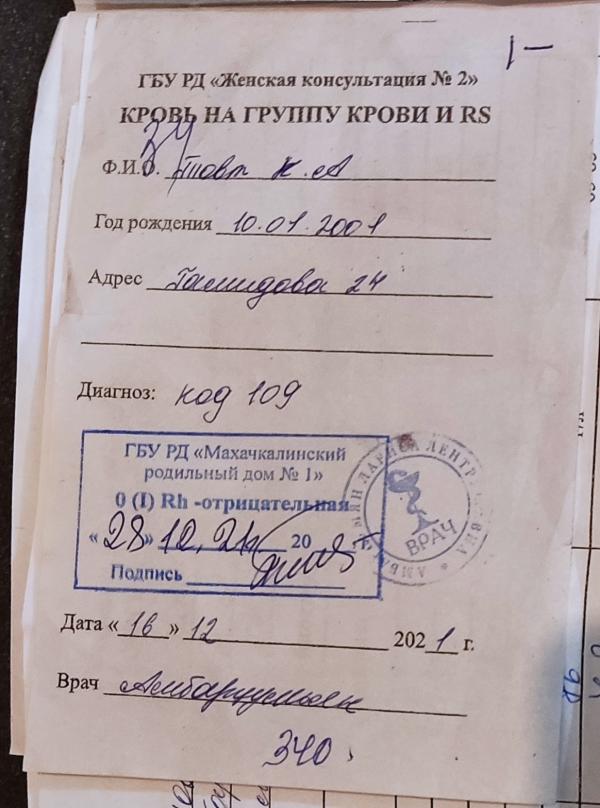 1-
ГБУ РД «Женская консультация № 2»
КРОВЬ НА ГРУППУ КРОВИ И RS
34
Ф.И.О. Товт К.А
Год рождения 10.01.2001
Адрес Гамидова 24
Диагноз: код 109
ГБУ РД «Махачкалинский
родильный дом № 1»
0 (I) Rh -отрицательная
«28» 12. 21 20
Подпись
ЛАРИСА
ВРАЧ
Дата «16» 12 2021 г.
Врач Амбарцумян
340